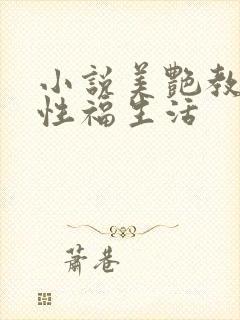 小說美艷教
性福生活
蕭巷